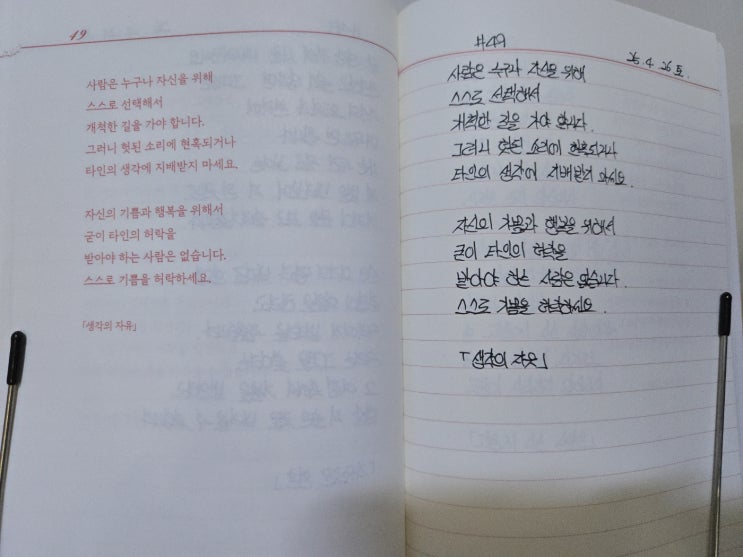 49
사람은 누구나 자신을 위해
스스로 선택해서
개척한 길을 가야 합니다.
그러니 헛된 소리에 현혹되거나
타인의 생각에 지배받지 마세요.
자신의 기쁨과 행복을 위해서
굳이 타인의 허락을
받아야 하는 사람은 없습니다.
스스로 기쁨을 허락하세요.
「생각의 자유」
#49
25. 4. 26 토.
사람은 누구나 자신을 위해
스스로 선택해서
개척한 길을 가야 합니다.
그러니 헛된 소리에 현혹되거나
타인의 생각에 지배받지 마세요.
자신의 기쁨과 행복을 위해서
굳이 타인의 허락을
받아야 하는 사람은 없습니다.
스스로 기쁨을 허락하세요.
「생각의 자유」